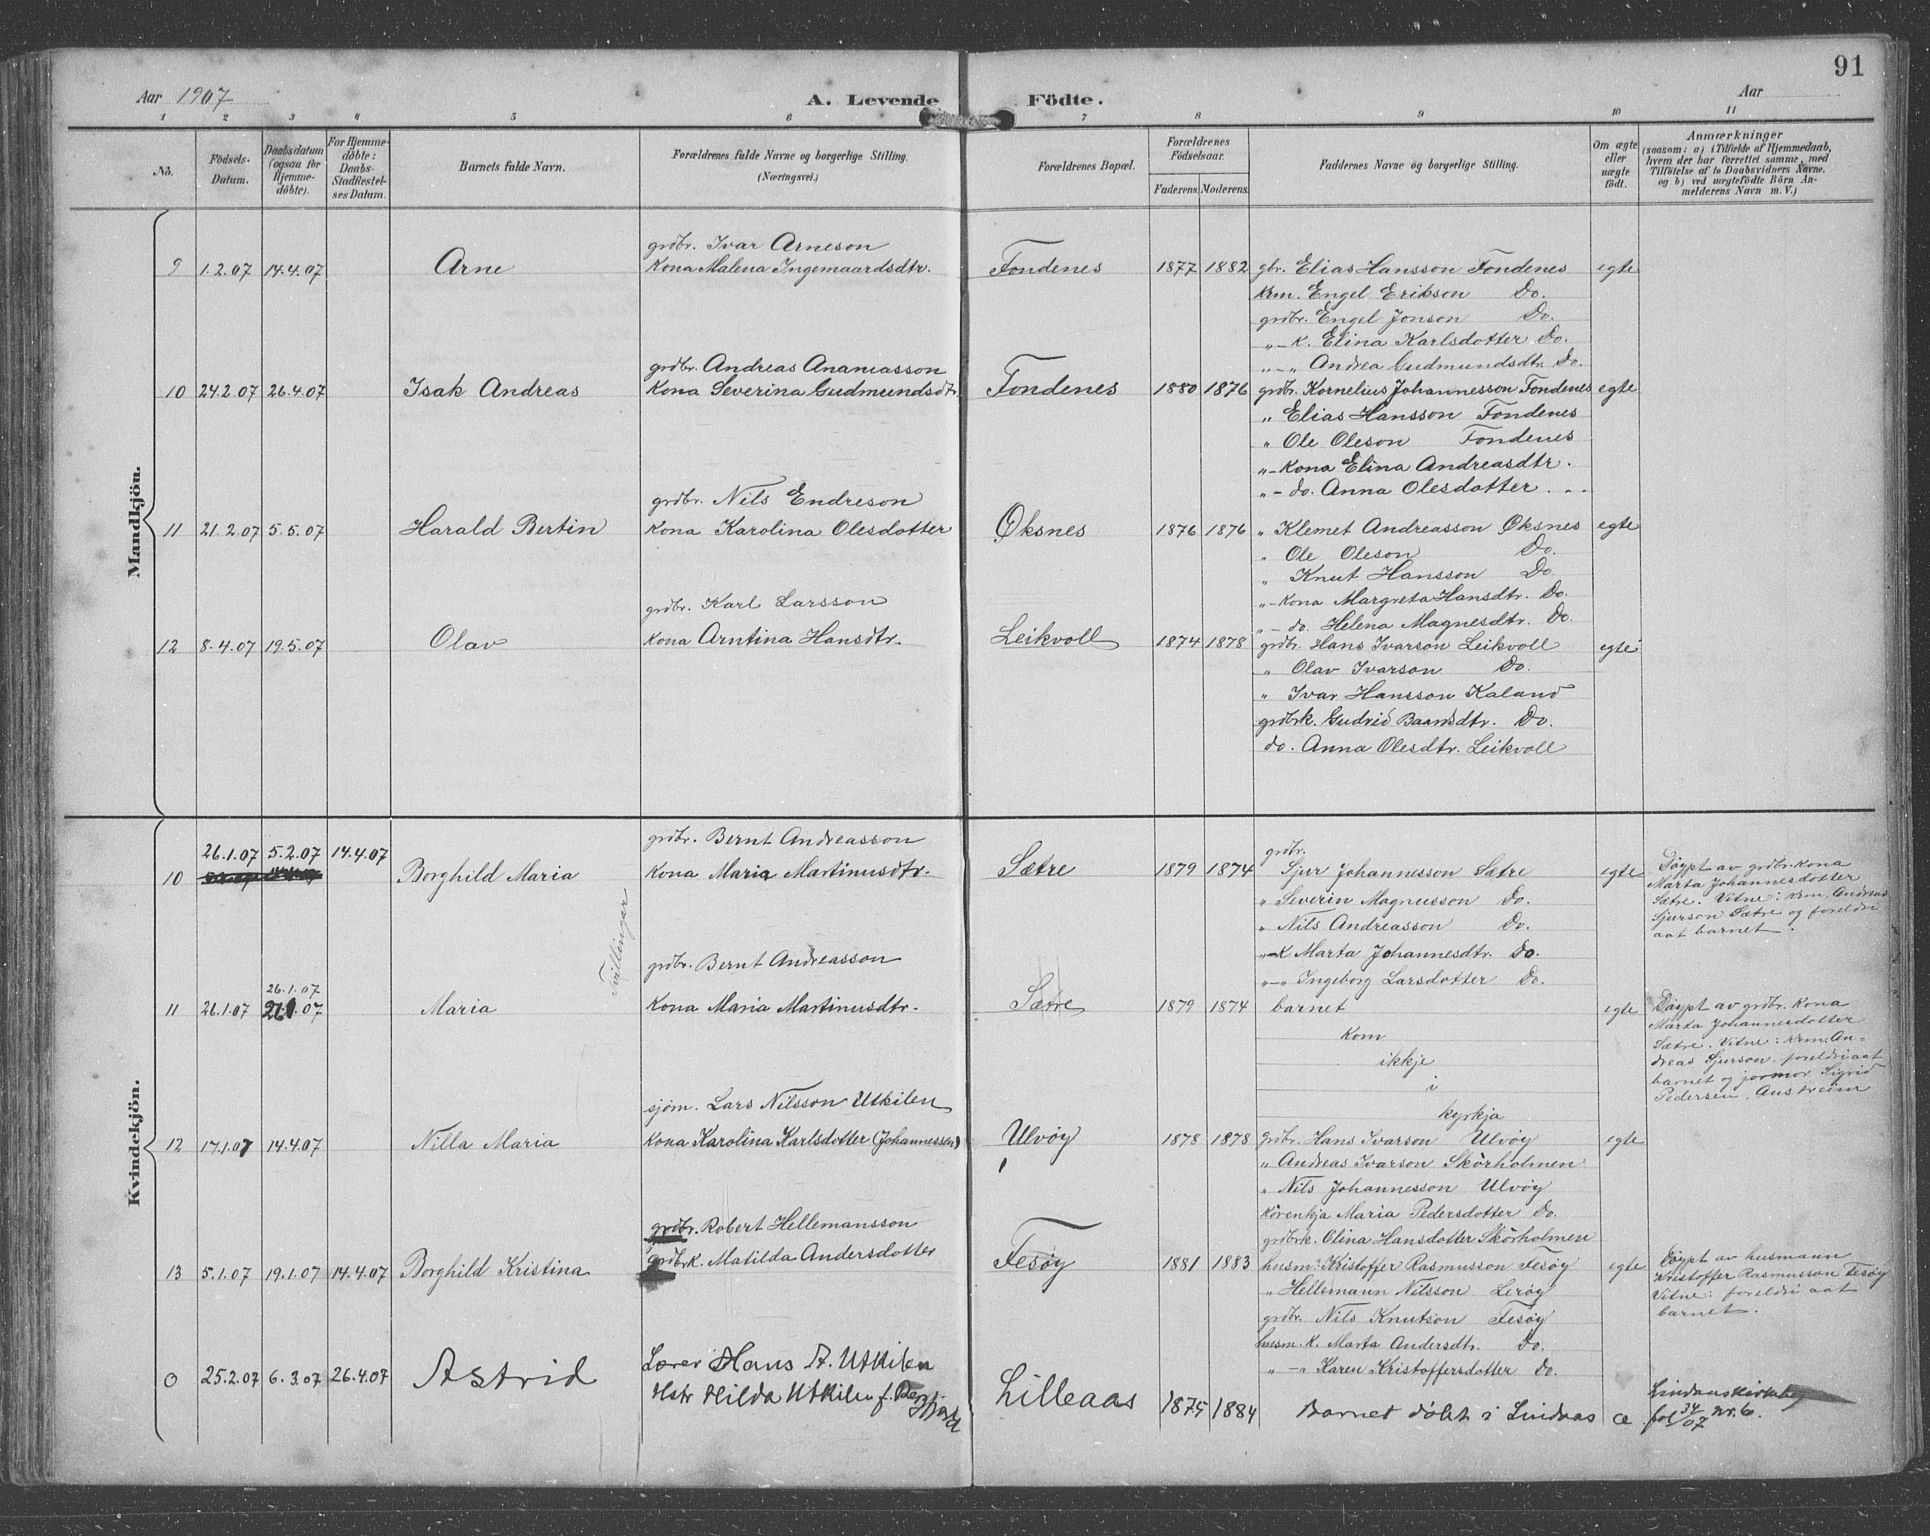 91
Aar 1907
A. Levende Födte.
Aar
1 2 3 4 5 6 7 8 9 10 11
No.
Födsels-Datum.
Daabsdatum (ogsaa for Hjemmedöbte).
For Hjemmedöbte: Daabs-Stadfæstelses Datum.
Barnets fulde Navn.
Forældrenes fulde Navne og borgerlige Stilling. (Næringsvei.)
Forældrenes Bopæl.
Forældrenes Födselsaar.
Faderens. Moderens.
Faddernes Navne og borgerlige Stilling.
Om ægte eller uægte födt.
Anmærkninger
(saasom: a) i Tilfælde af Hjemmedaab,
hvem der har forrettet samme, med
Tilföielse af to Daabsvidners Navne,
og b) ved uægtefödte Börn An-
melderens Navn m. V.)
Mandkjön.
grdbr. Ivar Arneson
9 1.2.07 14.4.07 Arne Kona Malena Ingemaardsdtr. Fondenes 1877 1882 gbr. Elias Hansson Fondenes egte
Krm. Engel Erikson Do.
grdbr. Engel Jonson Do.
"-K. Elina Karlsdotter Do.
"-" Andrea Gudmundsdtr. Do.
grdbr. Andreas Ananiasson
10 24.2.07 26.4.07 Isak Andreas Kona Severina Gudmundsdtr Fondenes 1880 1876 grdbr. Kornelius Johannesson Fondenes egte
" Elias Hansson Fondenes
" Ole Oleson Fondenes
"-Kona Elina Andreasdtr.
"-do. Anna Olesdotter
grdbr. Nils Endreson
11 21.2.07 5.5.07 Harald Bertin Kona Karolina Olesdotter Øksnes 1876 1876 " Klemet Andreasson Øksnes egte
" Ole Oleson Do.
" Knut Hansson Do
"-Kona Margreta Hansdtr. Do.
"-do. Helena Magnesdtr. Do.
grdbr. Karl Larsson
12 8.4.07 19.5.07 Olav Kona Arntina Hansdtr. Leikvoll 1874 1878 grdbr. Hans Ivarson Leikvoll egte
" Olav Ivarson Do.
" Ivar Hansson Kaland
grdbrk. Gudrid Baardsdtr. Do.
do. Anna Olesdtr. Leikvoll
Kvindekjön.
grdbr. Bernt Andreasson
10 26.1.07 5.2.07 14.4.07 Borghild Maria Kona Maria Martinusdtr. Sætre 1879 1874 grdbr. Sjur Johannesson Sætre egte
" Severin Magnusson Do.
" Nils Andreasson Do.
"-K Marta Johannesdtr. Do.
"-" Ingeborg Larsdotter Do.
Døypt av grdbr. kona
Marta Johannesdotter
Sætre. Vitne: Krm. Andreas
Sjurson Sætre og foreldri
aat barnet.
Tvillingar
grdbr. Bernt Andreasson
26.1.07
11 26.1.07 Maria Kona Maria Martinusdtr. Sætre 1879 1874 barnet egte
kom
ikkje
i
kyrkja
Døypt av grdbr. kona
Marta Johannesdotter
Sætre. Vitne: Krm. An-
dreas Sjurson, foreldri aat
barnet og jormor Sigrid
Pedersen, Austreim
sjöm. Lars Nilsson Utkilen
12 17.1.07 14.4.07 Nilla Maria Kona Karolina Karlsdotter (Johannessen) Ulvøy 1878 1878 grdbr. Hans Ivarson Ulvöy egte
" Andreas Ivarson Skörholmen
" Nils Johannesson Ulvöy
Kårenkja Maria Pedersdotter Do.
grdbrk. Olina Hansdotter Skörholmen
grdbr. Robert Hellemansson
grdbrk. Matilda Andersdotter
13 5.1.07 19.1.07 14.4.07 Borghild Kristina Fesøy 1881 1883 husm. Kristoffer Rasmusson Fesøy egte
" Hellemann Nilsson Lerøy
grdbr. Nils Knutson Fesøy
husm. K. Marta Andersdtr. Do.
"-" Karen Kristoffersdotter Do.
Døypt av husmann
Kristoffer Rasmusson Fesøy
Vitne: foreldri aat
barnet.
Lærer Hans A. Utkilen
0 25.2.07 6.3.07 26.4.07 Astrid Hstr Hilda Utkilen f. Lilleaas 1875 1884 Barnet döbt i Lindaas æ
fol 34/07 Nr. 6.